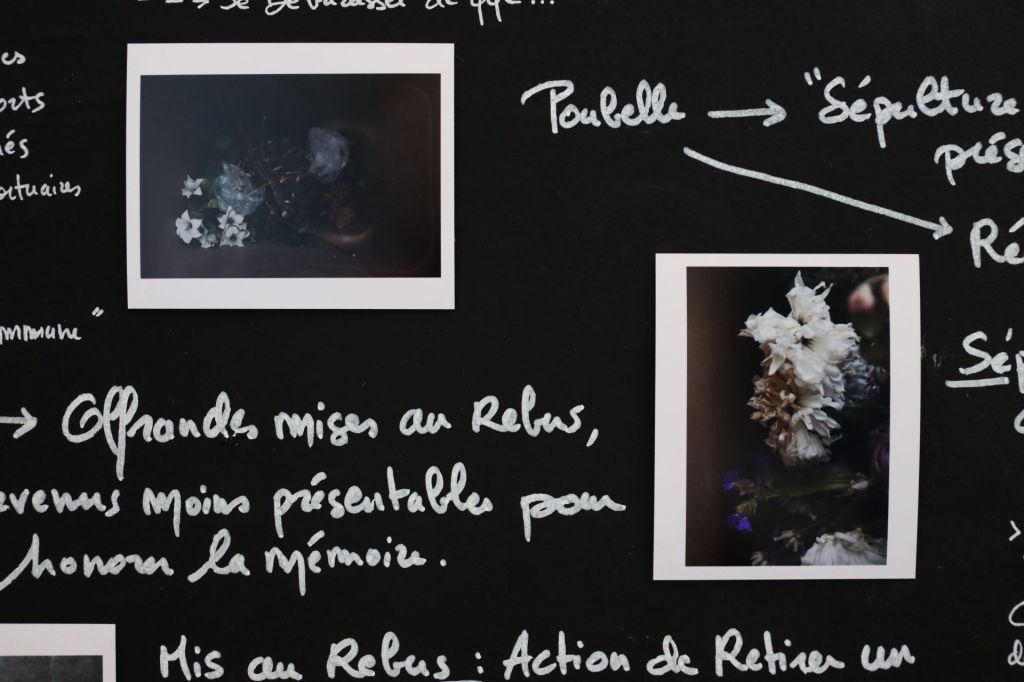 se débarasser de qqc...
Poubelle → "Sépulture
prés
Ré
mmune"
Sép
→ Offrandes mises au Rebus,
evenus moins présentables pour
honorer la mémoire.
Mis au Rebus : Action de Retirer un